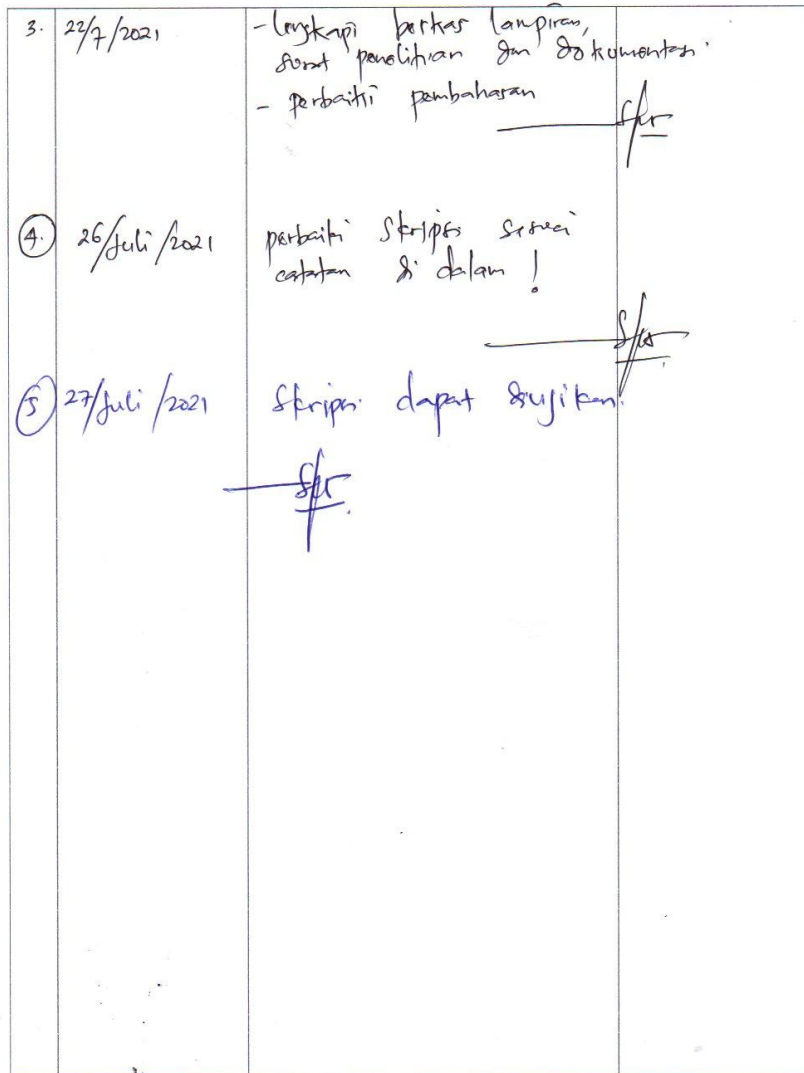 3. 22/7/2021 - lengkapi berkas lampiran,
surat penelitian dan dokumentasi.
- perbaiki pembahasan
4. 26/Juli/2021 perbaiki Skripsi sesuai
catatan di dalam !
5 27/Juli/2021 Skripsi dapat diujikan.